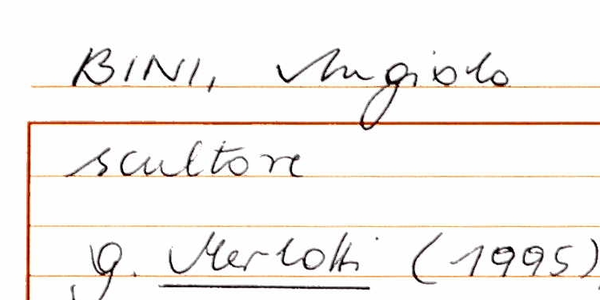 BINI, Angiolo
scultore
g. Merlotti (1995)